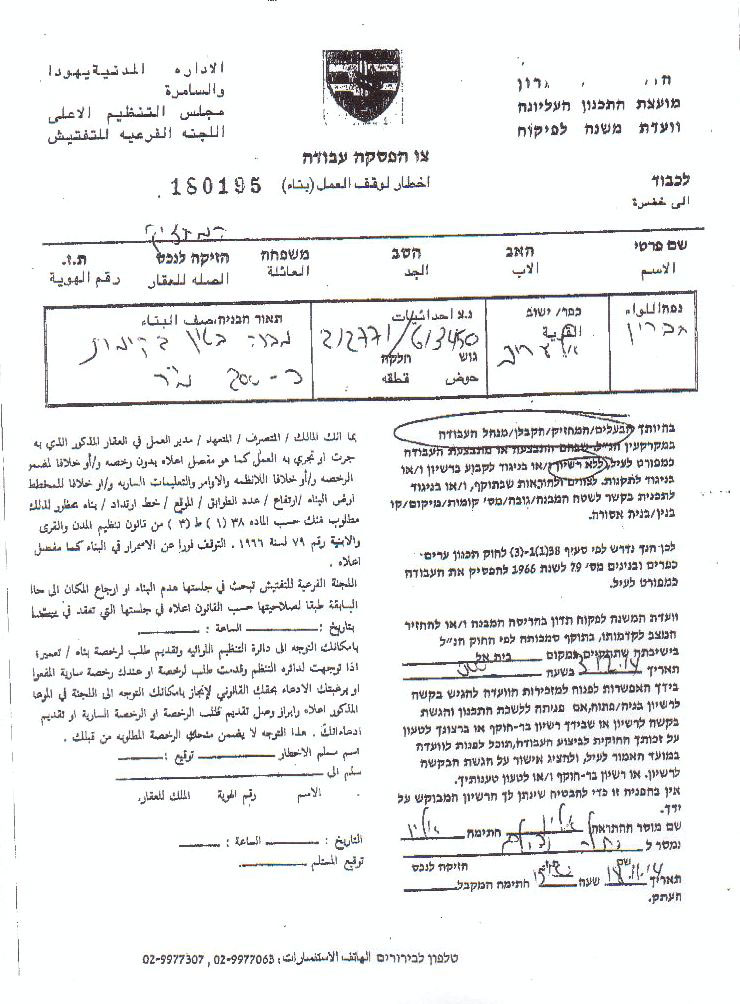 מועצת התכנון העליונה
וועדת משנה לפיקוח
الاداره المدنية يهودا
والسامرة
مجلس التنظيم الاعلى
اللجنه الفرعيه للتفتيش
צו הפסקה עבודה
اخطار لوقف العمل (بناء) 180195
לכבוד
الى حضرة
שם פרטי האב הסב משפחה הזיקה לנכס ת.ז.
الاسم الاب الجد العائلة الصله للعقار رقم الهوية
נפה اللواء כפר/ ישוב נ.צ احداثيات תאור הבניה، صف البناء
חברון القرية 212771/613450
גוש חלקה
حوض قطعه
בהיותך הבעלים/המחזיק/הקבלן/מנהל העבודה
במקרקעין הנ"ל, שבהם התבצעה או מתבצעת העבודה
כמפורט לעיל, ללא רשיון ו/או בניגוד לקבוע ברשיון ו/או
בניגוד לתקנות, לצווים ולהוראות שבתוקף, ו/או בניגוד
לתכנית בקשר לשטח המבנה/גובה/מס' קומות/מיקום/קו
בנין/בנית אסורה.
לכן הנך נדרש לפי סעיף 38(1)-(3) לחוק תכנון ערים-
כפרים ובנינים מס' 79 לשנת 1966 להפסיק את העבודה
כמפורט לעיל.
וועדת המשנה לפקוח תדון בהריסת המבנה ו/או להחזיר
המצב לקדמותו, בתוקף סמכותה לפי החוק הנ"ל
בישיבתה שתתקיים במקום בית אל
תאריך 3.12.14 בשעה
בידך האפשרות לפנות למזכירות הוועדה להגיש בקשה
לרשיון בניה/פתוח, אם פניתה ללשכת התכנון והגשת
בקשה לרשיון או שבידך רשיון בר-חוקף או ברצונך לטעון
על זכותך החוקית לביצוע העבודה, תוכל לפנות לוועדה
במועד האמור לעיל, ולהציג אישור על הגשת הבקשה
לרשיון. או רשיון בר-תוקף ו/או לטעון טענותיך.
אין בהפנית זו כדי להבטיח שינתן לך הרשיון המבוקש על
ידך.
שם מוסר ההתראה חתימה
נמסר ל
שם הזיקה לנכס
תאריך 18.11.14 שעה חתימה המקבל
העתק.
بما انك المالك / المتصرف / المتعهد / مدير العمل في العقار المذكور الذي به
جرت او تجري به العمل كما هو مفصل اعلاه بدون رخصه و/أو خلافا لمضمون
الرخصه و/أو خلافا للانظمه والاوامر والتعليمات الساريه و/او خلافا للمخطط
ارض البناء /ارتفاع / عدد الطوابق / الموقع / خط ارتداد / بناء محظور لذلك
مطلوب منك حسب الماده ٣٨ (١) ط (٣) من قانون تنظيم المدن والقرى
والابنية رقم ٧٩ لسنة ١٩٦٦ . التوقف فورا عن الاستمرار في البناء كما مفصل
اعلاه .
اللجنة الفرعية للتفتيش تبحث في جلستها هدم البناء او ارجاع المكان الى حالته
السابقة طبقا لصلاحيتها حسب القانون اعلاه في جلستها التي تعقد في
بتاريخ : الساعة :
بامكانك التوجه الى دائرة التنظيم اللوائيه وتقديم طلب لرخصة بناء / تعمير؛
اذا توجهت لدائره التنظم وقدمت طلب لرخصة او عندك رخصة سارية المفعول
او برغبتك الادعاء بحقك القانوني لإنجاز بامكانك التوجه الى اللجنة في الموعد
المذكور اعلاه وابراز وصل تقديم طلب الرخصة او الرخصة السارية او تقديم
ادعاءاتك . هذا التوجه لا يضمن منحك الرخصة المطلوبه من قبلك .
اسم مسلم الاخطار توقيع :
سلم الى
الاسم رقم الهوية الملك للعقار.
التاريخ : الساعة :
توقيع المستلم
טלפון לבירורים الهاتف الاستفسارات : 02-9977063 , 02-9977307